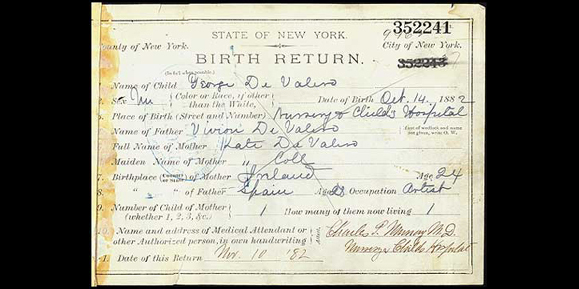 352241
STATE OF NEW YORK.
County of New York. City of New York.
BIRTH RETURN.
352213
(In full when possible.)
Name of Child George De Valero
Sex M Color or Race, if other than the White, Date of Birth Oct. 14. 1882
Place of Birth (Street and Number) Nursery & Child's Hospital
Name of Father Vivion De Valero
Full Name of Mother Kate De Valero
Maiden Name of Mother " Coll
7. Birthplace of Mother Ireland Age 24
8. " " of Father Spain Age 28 Occupation Artist
9. Number of Child of Mother (whether 1, 2, 3, &c.) 1 How many of them now living 1
10. Name and address of Medical Attendant or other Authorized person, in own handwriting Charles E. Murray M.D.
Nursery & Childs Hospital
Date of this Return Nov. 10 '82